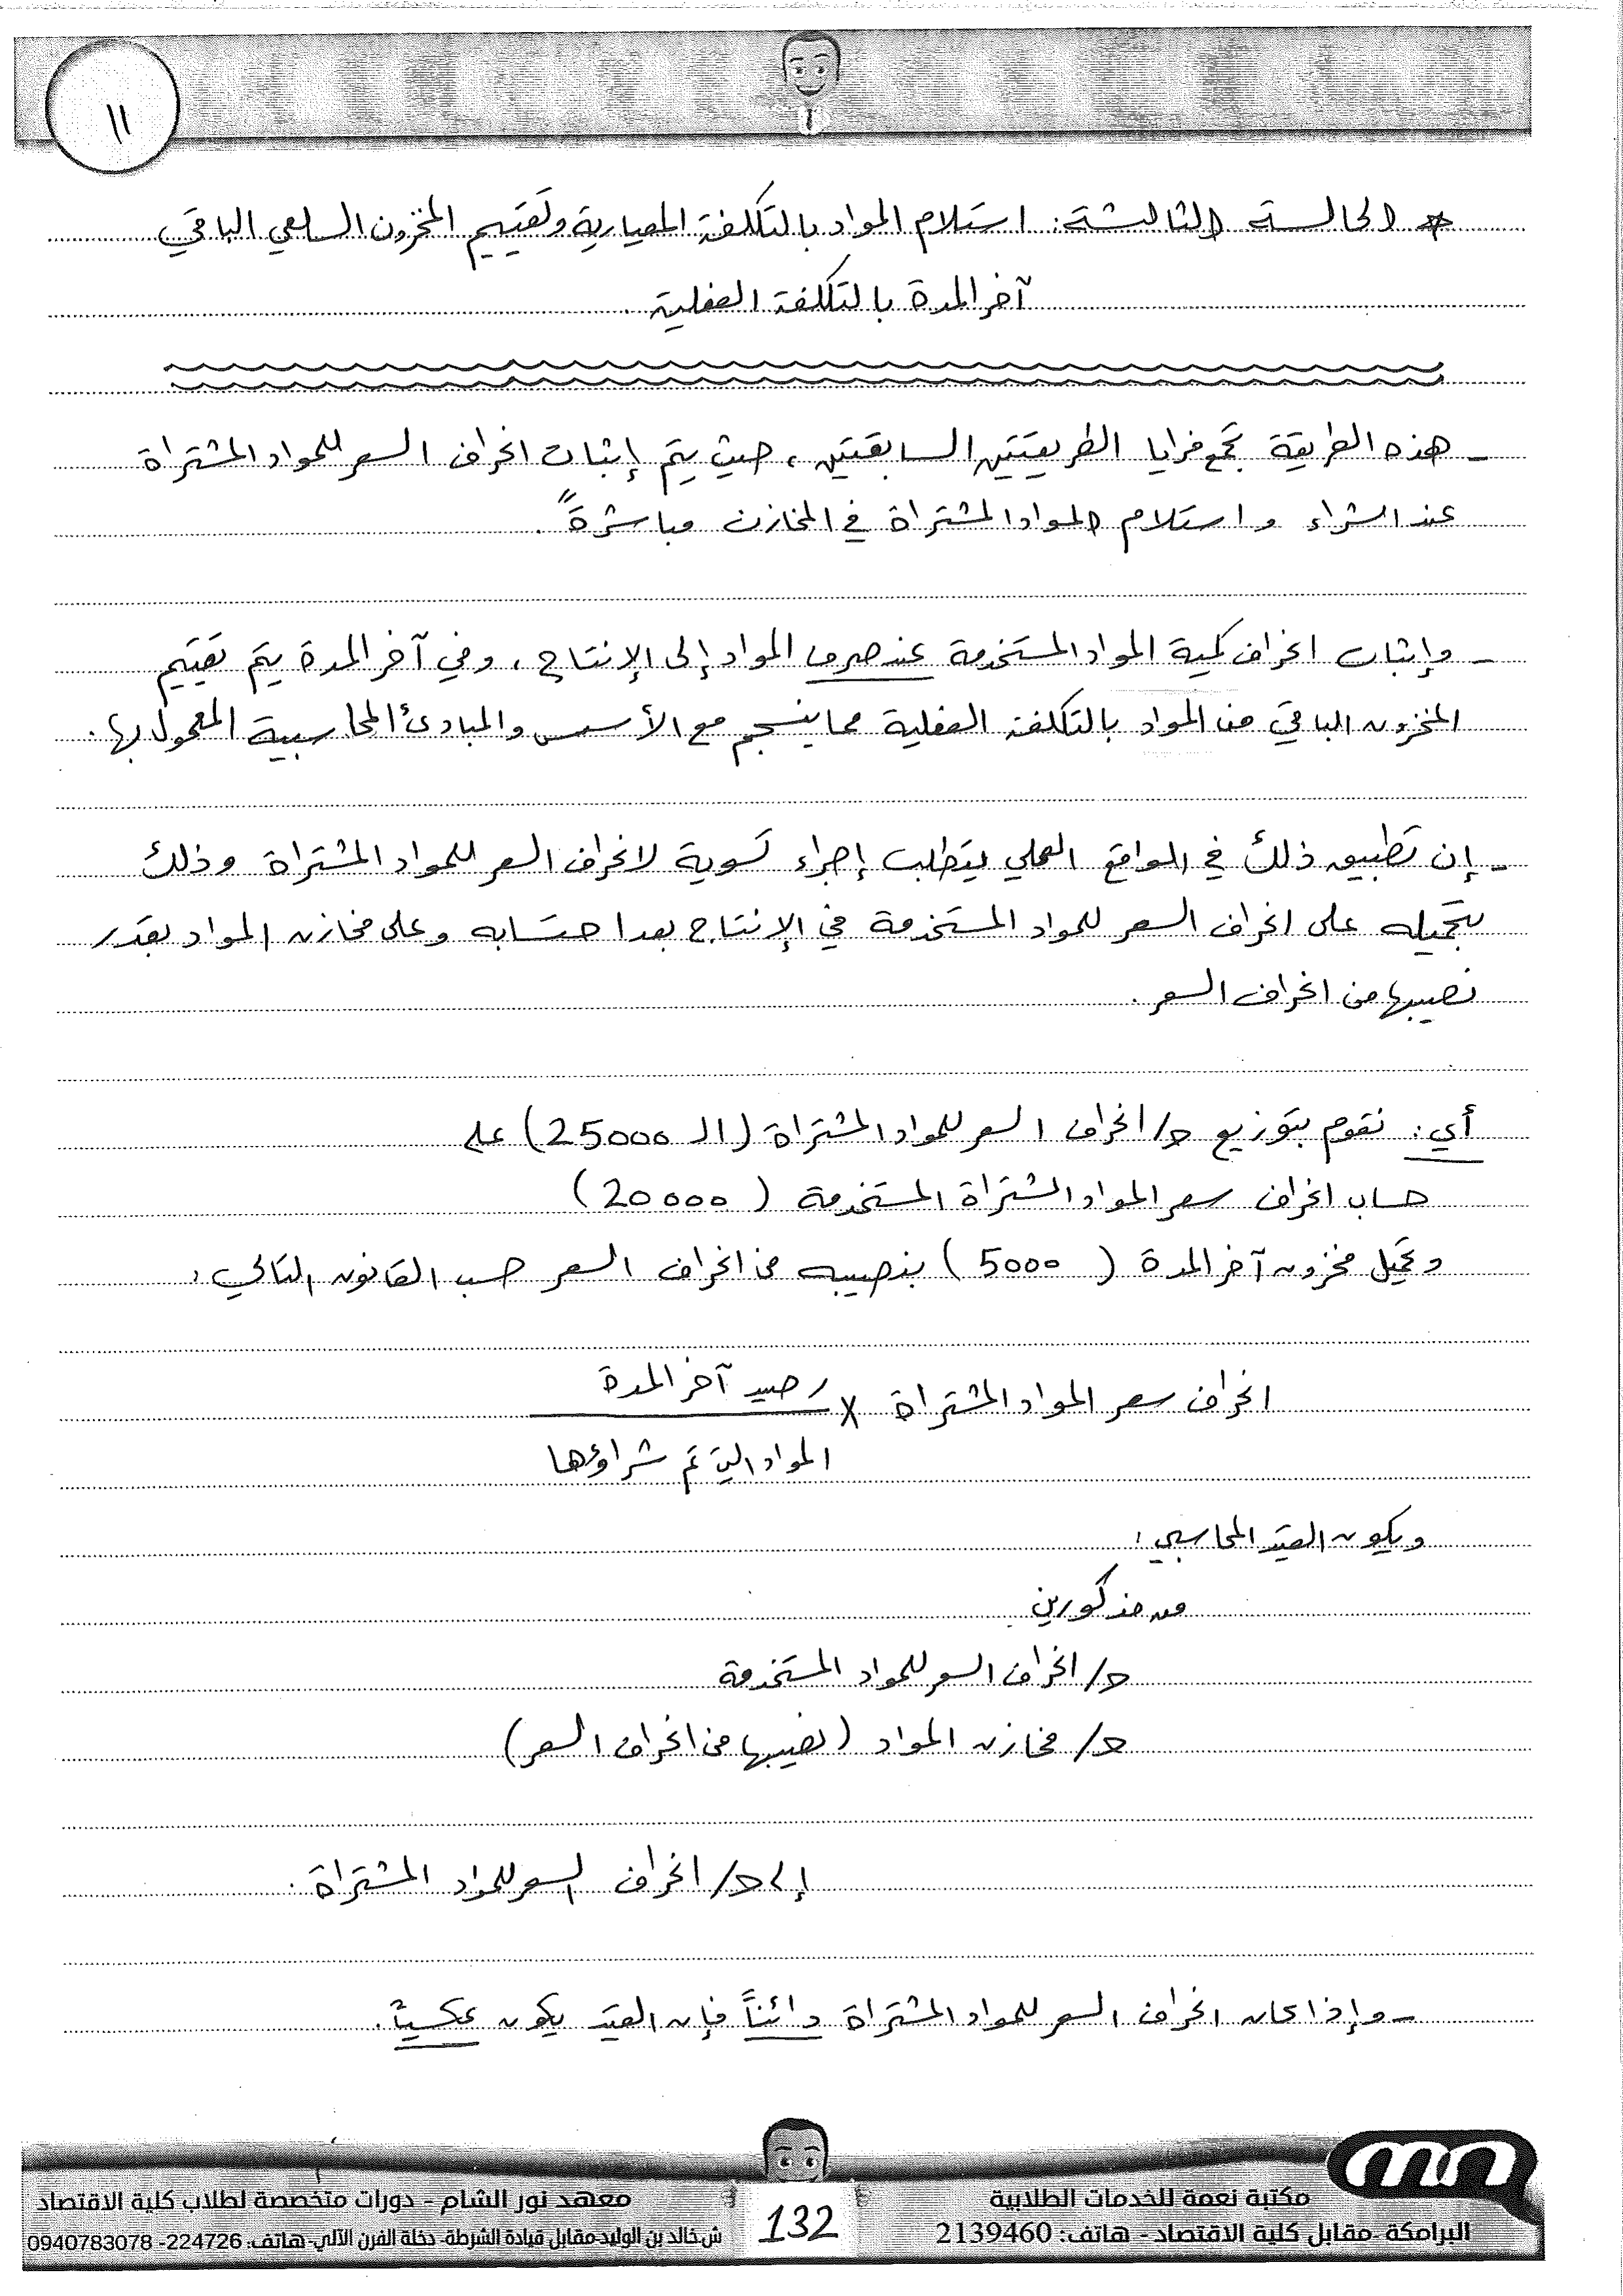 ١١
* الحالة الثالثة: استلام المواد بالتكلفة المعيارية وتقييم المخزون السلعي الباقي
آخر المدة بالتكلفة الفعلية.
- هذه الطريقة تجمع مزايا الطريقتين السابقتين، حيث يتم إثبات انحراف السعر للمواد المشتراة
عند الشراء واستلام المواد المشتراة في المخازن مباشرةً.
- وإثبات انحراف كمية المواد المستخدمة عند صرف المواد إلى الإنتاج، وفي آخر المدة يتم تقييم
المخزون الباقي من المواد بالتكلفة الفعلية مما ينسجم مع الأسس والمبادئ المحاسبية المعمول بها.
- إن تطبيق ذلك في الواقع العملي يتطلب إجراء تسوية لانحراف السعر للمواد المشتراة وذلك
بتحميله على انحراف السعر للمواد المستخدمة في الإنتاج بعد احتسابه وعلى مخازن المواد بقدر
نصيبها من انحراف السعر.
أي: نقوم بتوزيع ح/ انحراف السعر للمواد المشتراة (الـ 25000) على
حساب انحراف سعر المواد المشتراة المستخدمة (20000)
وتحميل مخزون آخر المدة (5000) بنصيبه من انحراف السعر حسب القانون التالي:
انحراف سعر المواد المشتراة × رصيد آخر المدة
المواد التي تم شراؤها
ويكون القيد المحاسبي:
من مذكورين
ح/ انحراف السعر للمواد المستخدمة
ح/ مخازن المواد (نصيبها من انحراف السعر)
إلى ح/ انحراف السعر للمواد المشتراة.
- وإذا كان انحراف السعر للمواد المشتراة دائناً فإن القيد يكون عكسياً.
مكتبة نعمة للخدمات الطلابية
البرامكة -مقابل كلية الاقتصاد - هاتف: 2139460
132
معهد نور الشام - دورات متخصصة لطلاب كلية الاقتصاد
ش خالد بن الوليد-مقابل قيادة الشرطة- دخلة الفرن الآلي- هاتف: 224726- 0940783078